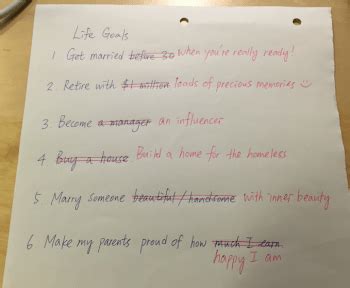 Life Goals
1 Get married before 30 when you're really ready!
2. Retire with $1 million loads of precious memories ☺
3. Become a manager an influencer
4 Buy a house Build a home for the homeless
5. Marry someone beautiful / handsome with inner beauty
6 Make my parents proud of how much I earn.
happy I am